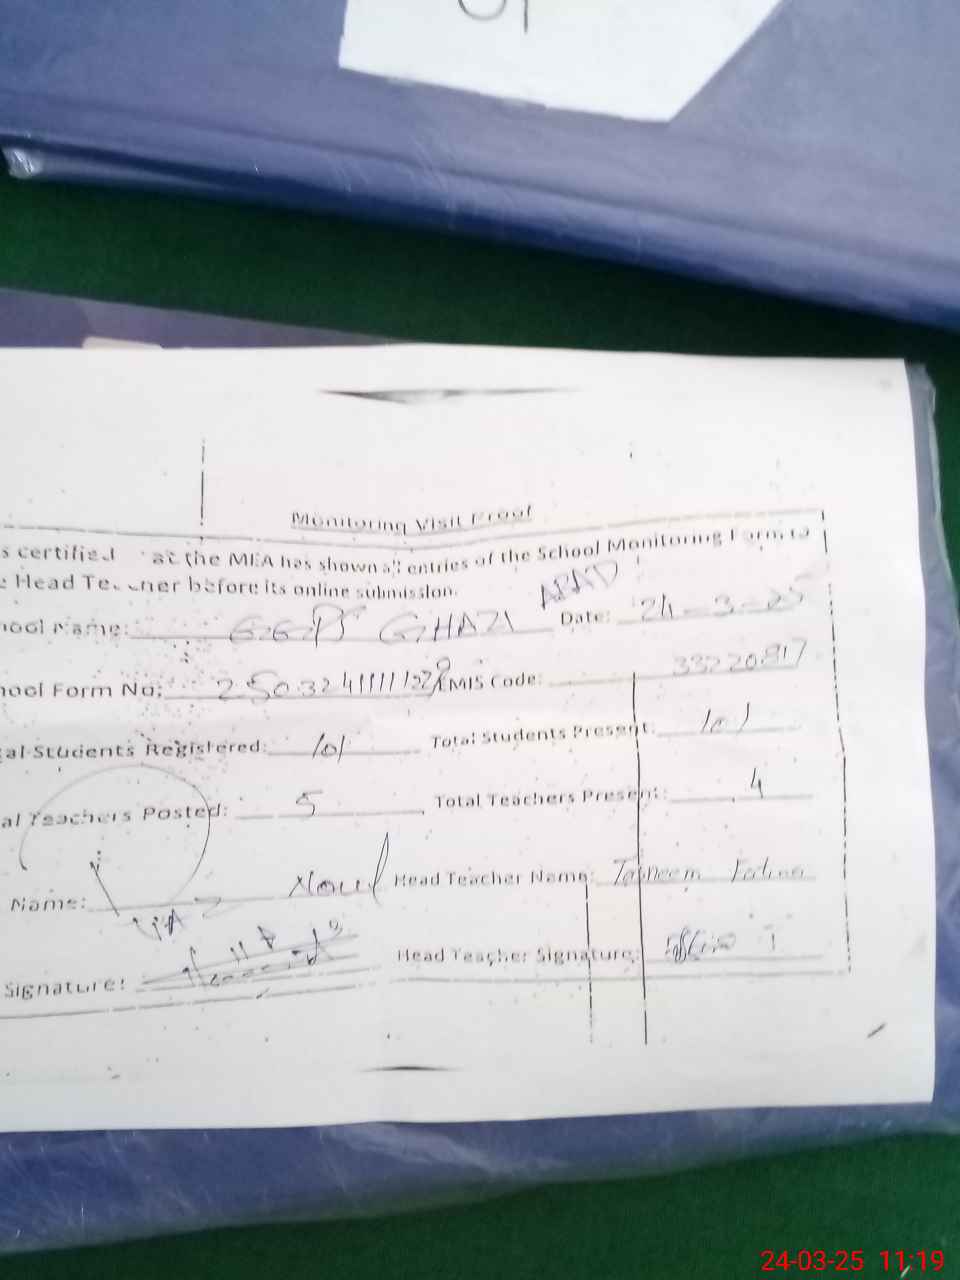 Monitoring Visit Proof
s certified at the MEA has shown all entries of the School Monitoring Form to
e Head Teacher before its online submission.
hool Name: G.G.PS GHAZI ABAD Date: 24-3-25
hool Form No: EMIS Code: 33220817
tal Students Registered: 101 Total Students Present: 101
al Teachers Posted: 5 Total Teachers Present: 4
Name: Head Teacher Name: Tasneem
Signature: Head Teacher Signature:
24-03-25 11:19